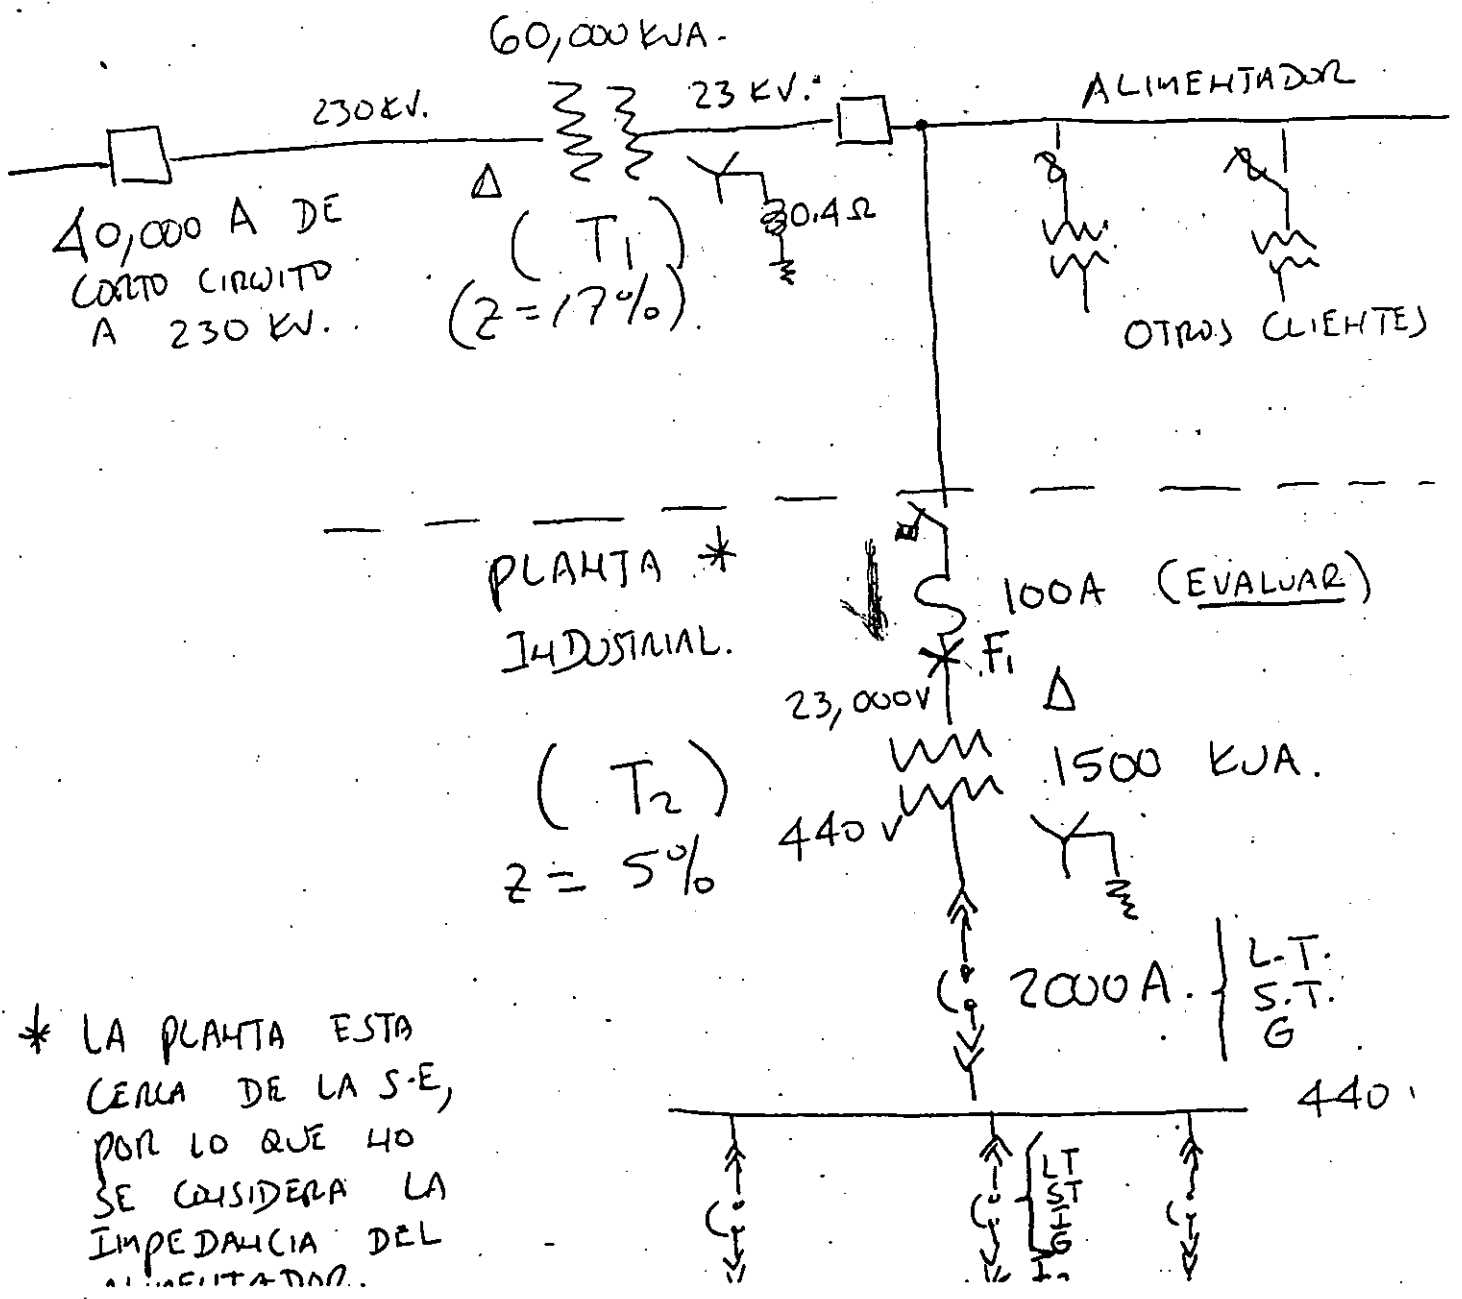 60,000 KVA.
230 KV.
23 KV.
ALIMENTADOR
Δ
0.4 Ω
40,000 A DE
CORTO CIRCUITO
A 230 KV.
(T1)
(Z=17%).
OTROS CLIENTES
PLANTA *
INDUSTRIAL.
100A (EVALUAR)
F1
23,000V
Δ
(T2)
Z = 5%
1500 KVA.
440 V
2000A.
L.T.
S.T.
G
440.
* LA PLANTA ESTA
CERCA DE LA S.E,
POR LO QUE NO
SE CONSIDERA LA
IMPEDANCIA DEL
ALIMENTADOR.
LT
ST
I
G